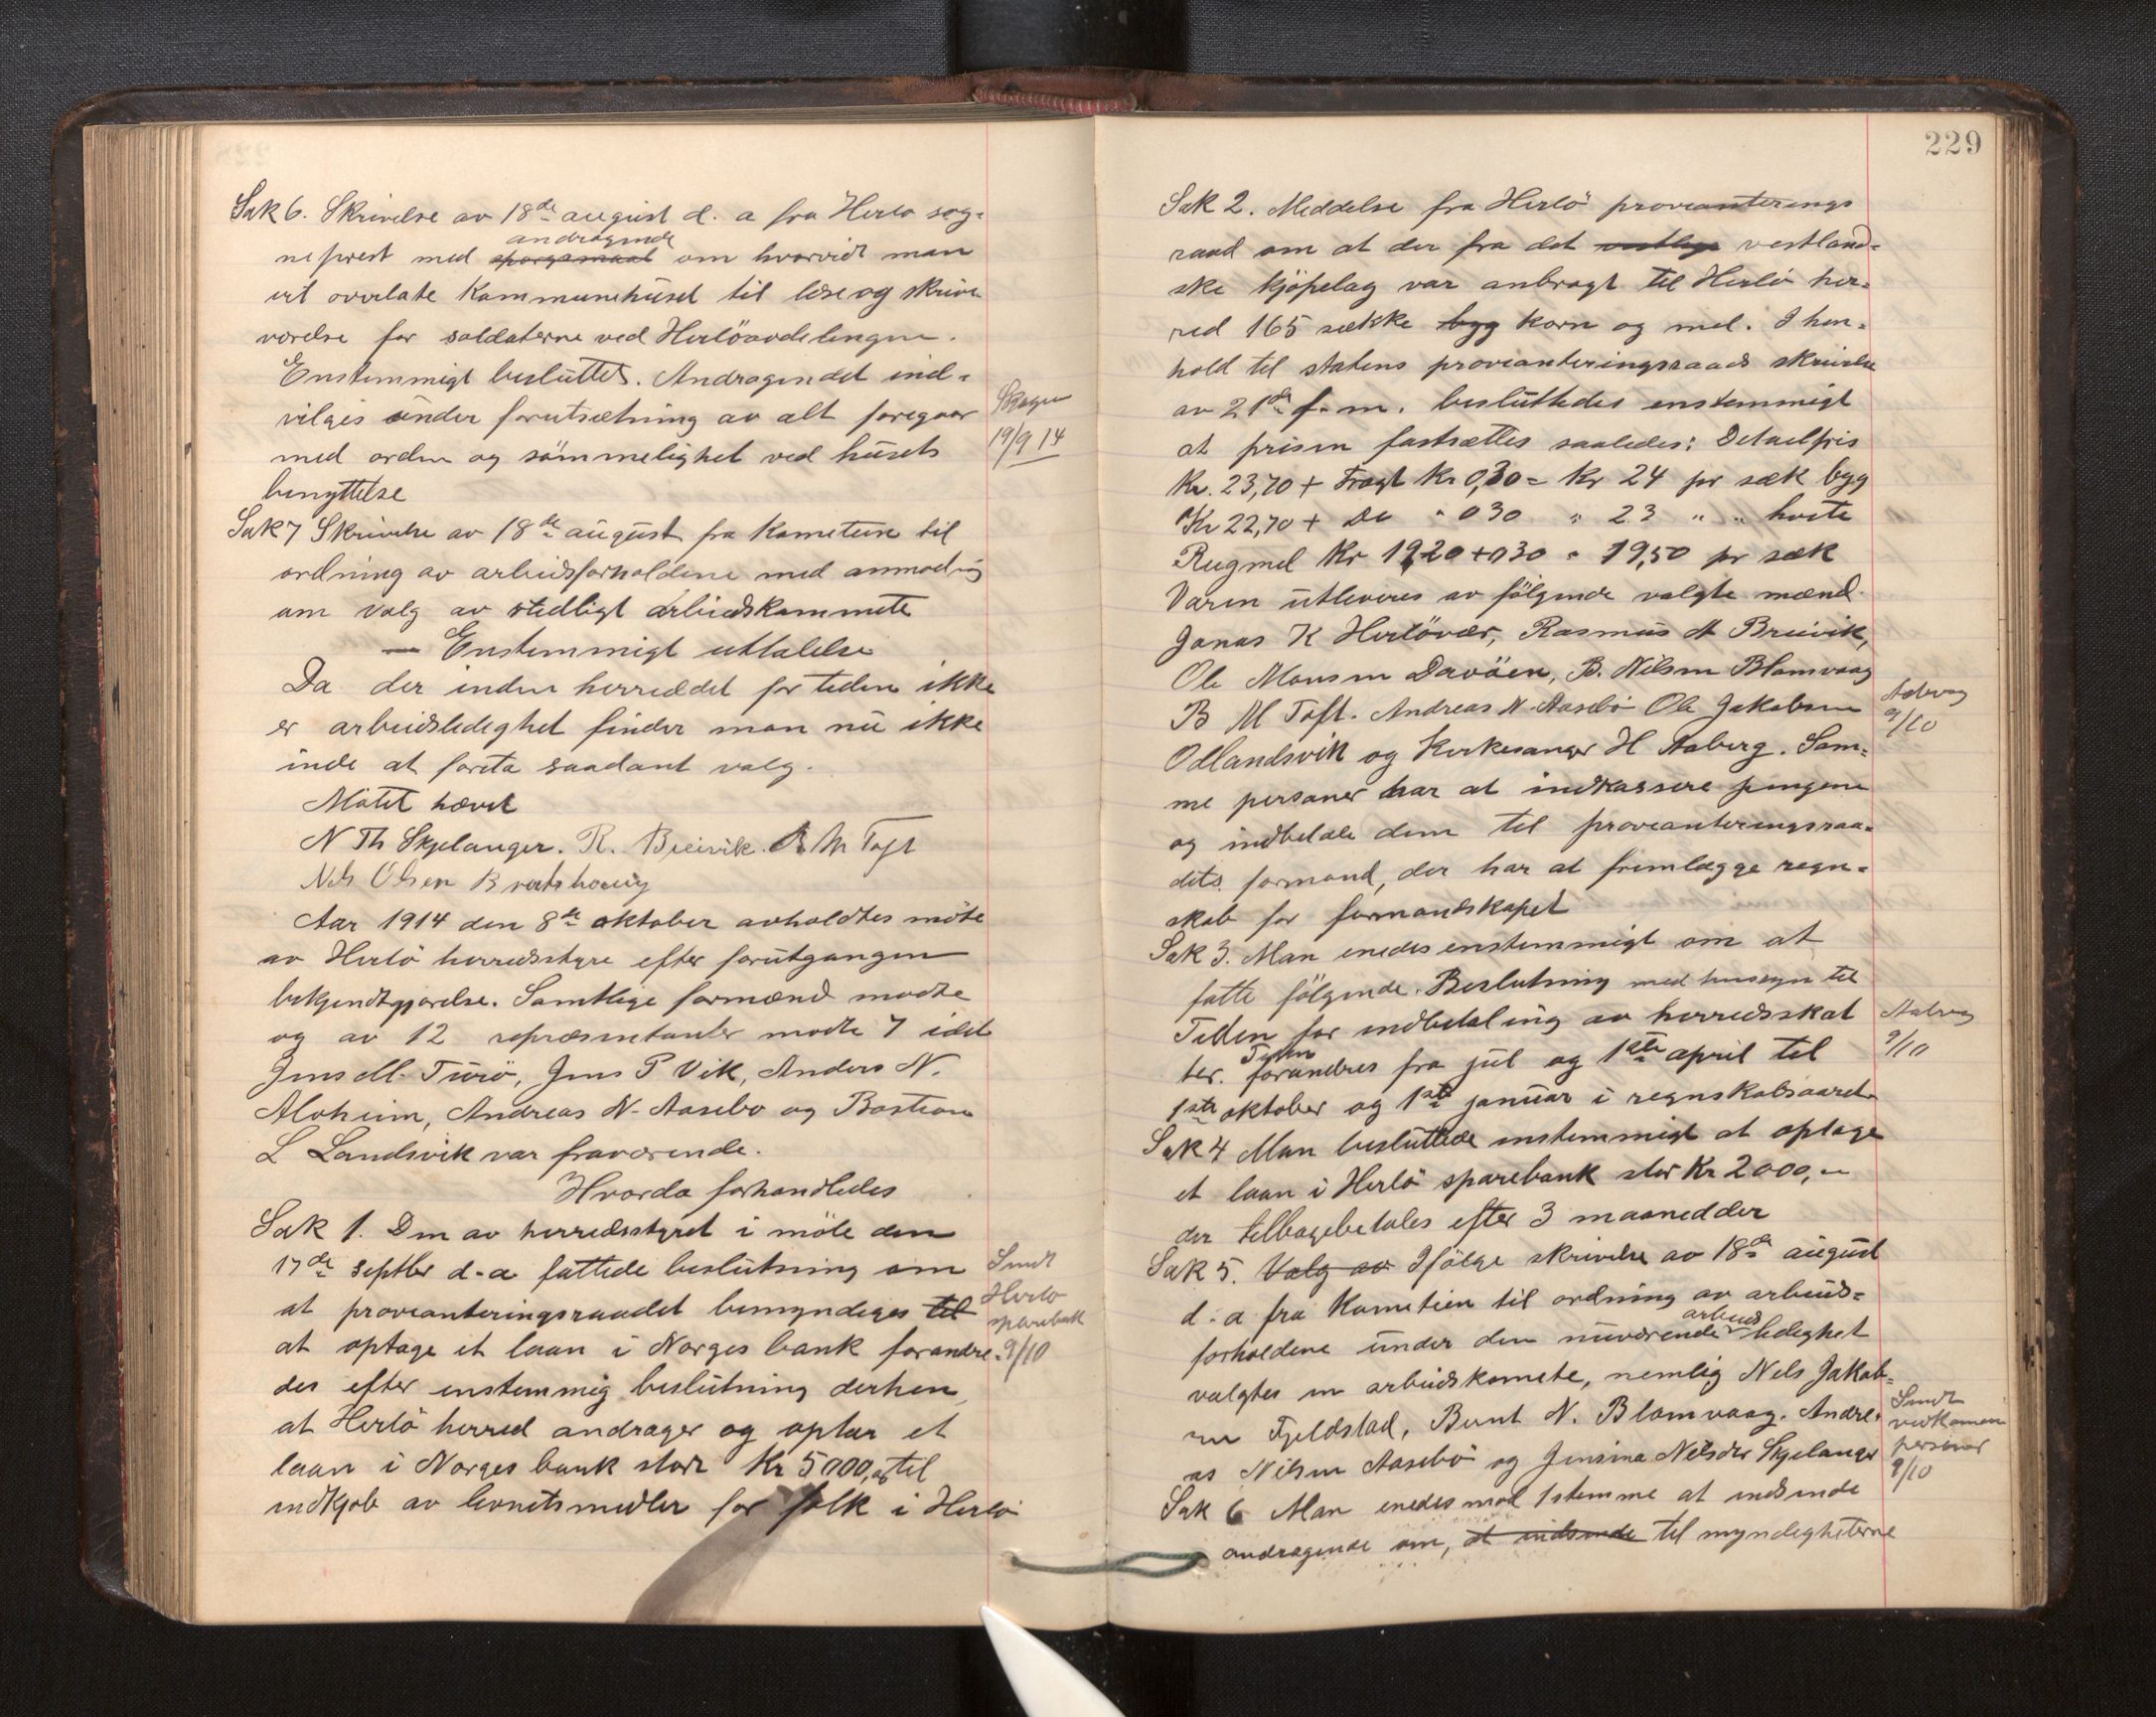 Sak 6. Skrivelse av 18de august d. a fra Herlø sog-
neprest med spørgsmaal andragende om hvorvidt man
vil overlate Kommunehuset til læse og skrive
værelse for soldaterne ved Herlöavdelingen.
Enstemmigt besluttet. Andragendet ind-
vilges under forutsætning av alt foregaar
med orden og sömmelighet ved husets
benyttelse
19/9 14
Sak 7 Skrivelse av 18de august fra Kometeen til
ordning av arbeidsforholdene med anmodnig
om valg av stedligt arbeidskommete
— Enstemmigt uttalelse
Da der inden herredet for tiden ikke
er arbeidsledighet finder man nu ikke
inde at foreta saadant valg.
Mötet hævet
N Th Skjelanger. R. Breivik. B M Toft
Nels Olsen
Aar 1914 den 8de oktober avholdtes möte
av Herlö herredsstyre efter forutgangen
bekjendtgjørelse. Samtlige formænd mødte
og av 12 repræsentanter mødte 7 idet
Jens M. Turö, Jens P Vik, Anders N.
Alvheim, Andreas N. Aasebø og Bastian
L Landsvik var fraværende.
Hvorda forhandledes
Sak 1. Den av herredsstyret i möte den
17de septbr d-a fattede beslutning om
at provianteringsraadet bemyndiges til
at optage et laan i Norges bank forandre-
des efter enstemmig beslutning derhen,
at Herlö herred andrager og optar et
laan i Norges bank stort Kr 5000,00 til
indkjøb av levnetsmidler for folk i Herlö
Sendt
Herlø
sparebank
9/10
229
Sak 2. Meddelse fra Herlö provianterings
raad om at der fra det vestlige vestland-
ske kjöpelag var anbragt til Herlö her-
red 165 sække byg korn og mel. I hen-
hold til statens provianteringsraads skrivelse
av 21de f. m. besluttedes enstemmigt
at prisen fastsættes saaledes: Detaelpris
Kr. 23,70 + Fragt Kr 0,30 = Kr 24 pr sæk byg
Kr 22,70 + Do " 030 " 23 " " hvete
Rugmel Kr 19,20 + 030 = 19,50 pr sæk
Varen utleveres av fölgende valgte mænd.
Jonas K Herlövær, Rasmus A Breivik,
Ole Monsen Davöen, B. Nilsen Blomvaag
B M Toft. Andreas N. Aasebö Ole Jakobsen
Odlandsvik og Kirkesanger H Aaberg. Sam-
me personer har at indkassere pengene
og indbetale dem til provianteringsraa-
dets formand, der har at fremlægge regn-
skab for formandskapet
9/10
Sak 3. Man enedes enstemmigt om at
fatte fölgende. Beslutning med hensyn til
Tiden for indbetaling av herredsskat
ter. Tiden forandres fra jul og 1ste april til
1ste oktober og 1ste januar i regnskabsaaret.
9/10
Sak 4 Man besluttede enstemmigt at optage
et laan i Herlö sparebank stor Kr 2000,-
der tilbagebetales efter 3 maanedder
Sak 5. Valg av Ifölge skrivelse av 18de august
d. a fra Kometien til ordning av arbeids-
forholdene under den nuværende arbeids ledighet
valgtes en arbeidskomete, nemlig Nels Jakob-
sen Fjeldstad, Bernt N. Blomvaag. Andre-
as Nilsen Aasebö og Jensina Nilsdtr Skjelanger
Sendt
vedkomen
personer
9/10
Sak 6 Man enedes mod 1 stemme at indsende
andragende om, at indsende til myndigheterne